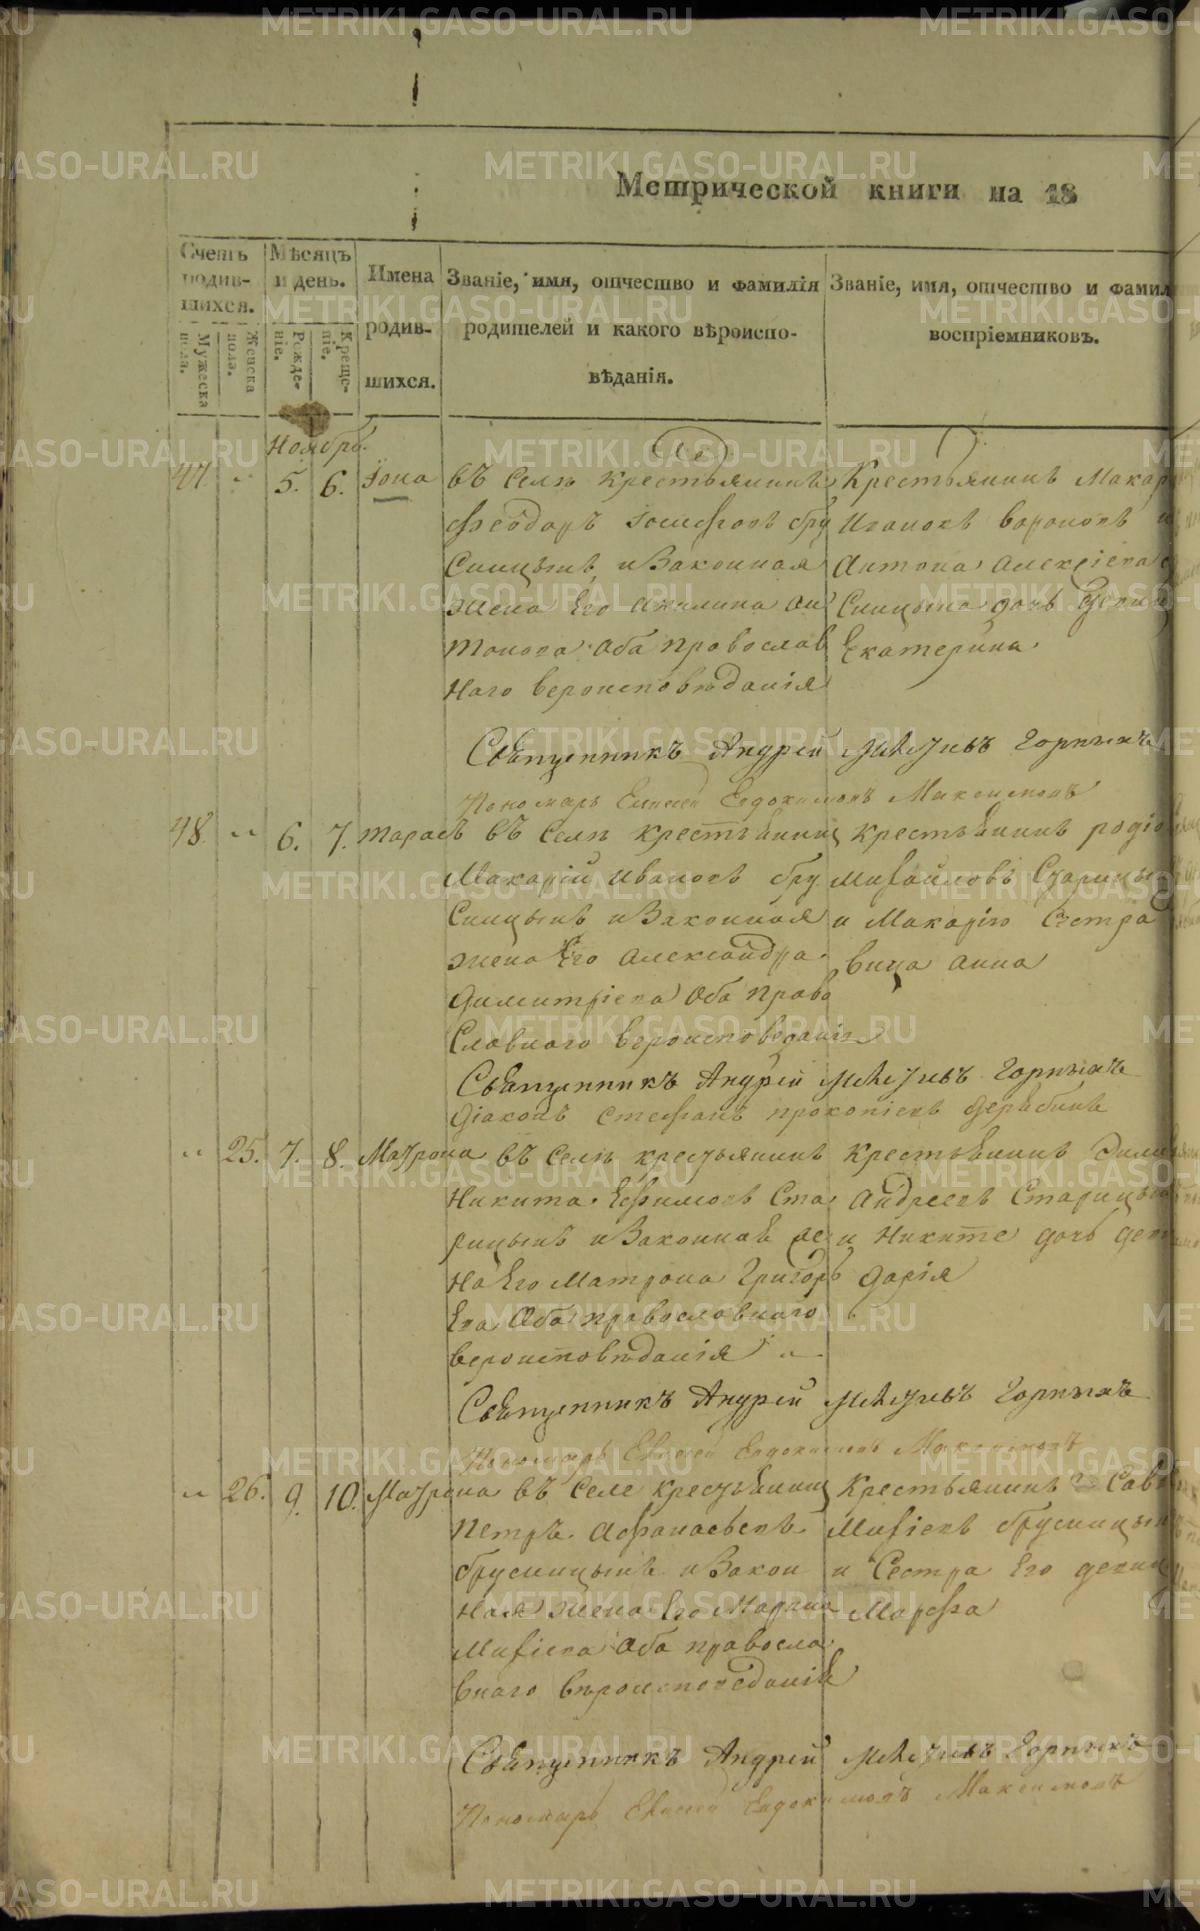 Метрической книги на 18
Счетъ родившихся.
Мужеска пола.
Женска пола.
Мѣсяцъ и день.
Рожденіе.
Крещеніе.
Имена родившихся.
Званіе, имя, отчество и фамилія родителей и какого вѣроисповѣданія.
Званіе, имя, отчество и фамил
воспріемниковъ.
Ноябрь.
47 " 5. 6. Іона
въ Селѣ крестьянинъ
Феодоръ Іосифовъ бру
Сницынъ и Законная
жена Его Акилина Ан
тонова Оба православ
наго вероисповѣданія
Крестьянинъ Макар
Ивановъ
Антона Алексіева
Сницына дочь Девиц
Екатерина.
Священникъ Андрей Горныхъ
Пономарь Елисей Евдокимовъ Максимовъ
48. " 6. 7. Тарасъ
въ Селѣ крестьянинъ
Макарій Ивановъ бру
Сницынъ и Законная
жена Его Александра
Димитріева Оба право
Славнаго вероисповеданія
крестьянинъ родіо
михайловъ Старицы
и Макарію Сестра
вица Анна
Священникъ Андрей Горныхъ
Діаконъ Стефанъ прокопіевъ Дерябинъ
" 25. 7. 8. Матрона
въ Селѣ крестьянинъ
Никита Ефимовъ Ста
рицынъ и Законная же
на Его Матрона Григорь
Ева Оба православнаго
вероисповѣданія
Крестьянинъ Дими
Андреевъ Старицын
и Никите дочь дев
Дарія
Священникъ Андрей Горныхъ
Пономарь Елисей Евдокимовъ Максимовъ
" 26. 9. 10. Матрона
въ Селе крестьянинъ
Петръ Афанасьевъ
брусницынъ и Закон
ная жена Его Маріана
Михіева Оба правосла
внаго вѣроисповеданія
Крестьянинъ Сав
Михіевъ брусницын
и Сестра Его девиц
Марфа
Священникъ Андрей Горныхъ
Пономарь Елисей Евдокимовъ Максимовъ
METRIKI.GASO-URAL.RU